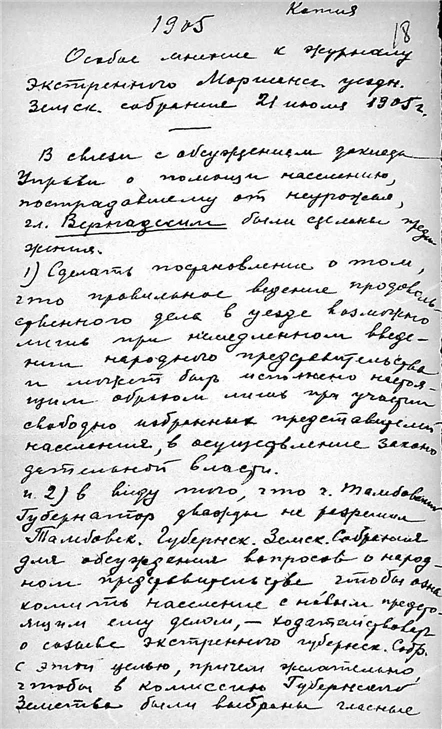 Копия
1905
18
Особое мнение к журналу
экстренного Моршанск. уездн.
Земск. собрание 21 июля 1905 г.
В связи с обсуждением доклада
Управы о помощи населению,
пострадавшему от неурожая,
гл. Вернадским были сделаны предло
жения.
1) Сделать постановление о том,
что правильное ведение продоволь-
ственного дела в уезде возможно
лишь при немедленном введе-
нии народного представительства
и может быть исполнено настоя-
щим образом лишь при участии
свободно избранных представителей
населения, в осуществление законо
дательной власти.
и 2) в виду того, что г. Тамбовский
Губернатор дважды не разрешил
Тамбовск. Губернск. Земск. Собрания
для обсуждения вопросов о народ-
ном представительстве чтобы озна
комить население с новым предсто-
ящим ему делом, – ходатайствовать
о созыве экстренного губернск. Собр.
с этой целью, причем желательно,
чтобы в комиссию Губернского
Земства были выбраны гласные